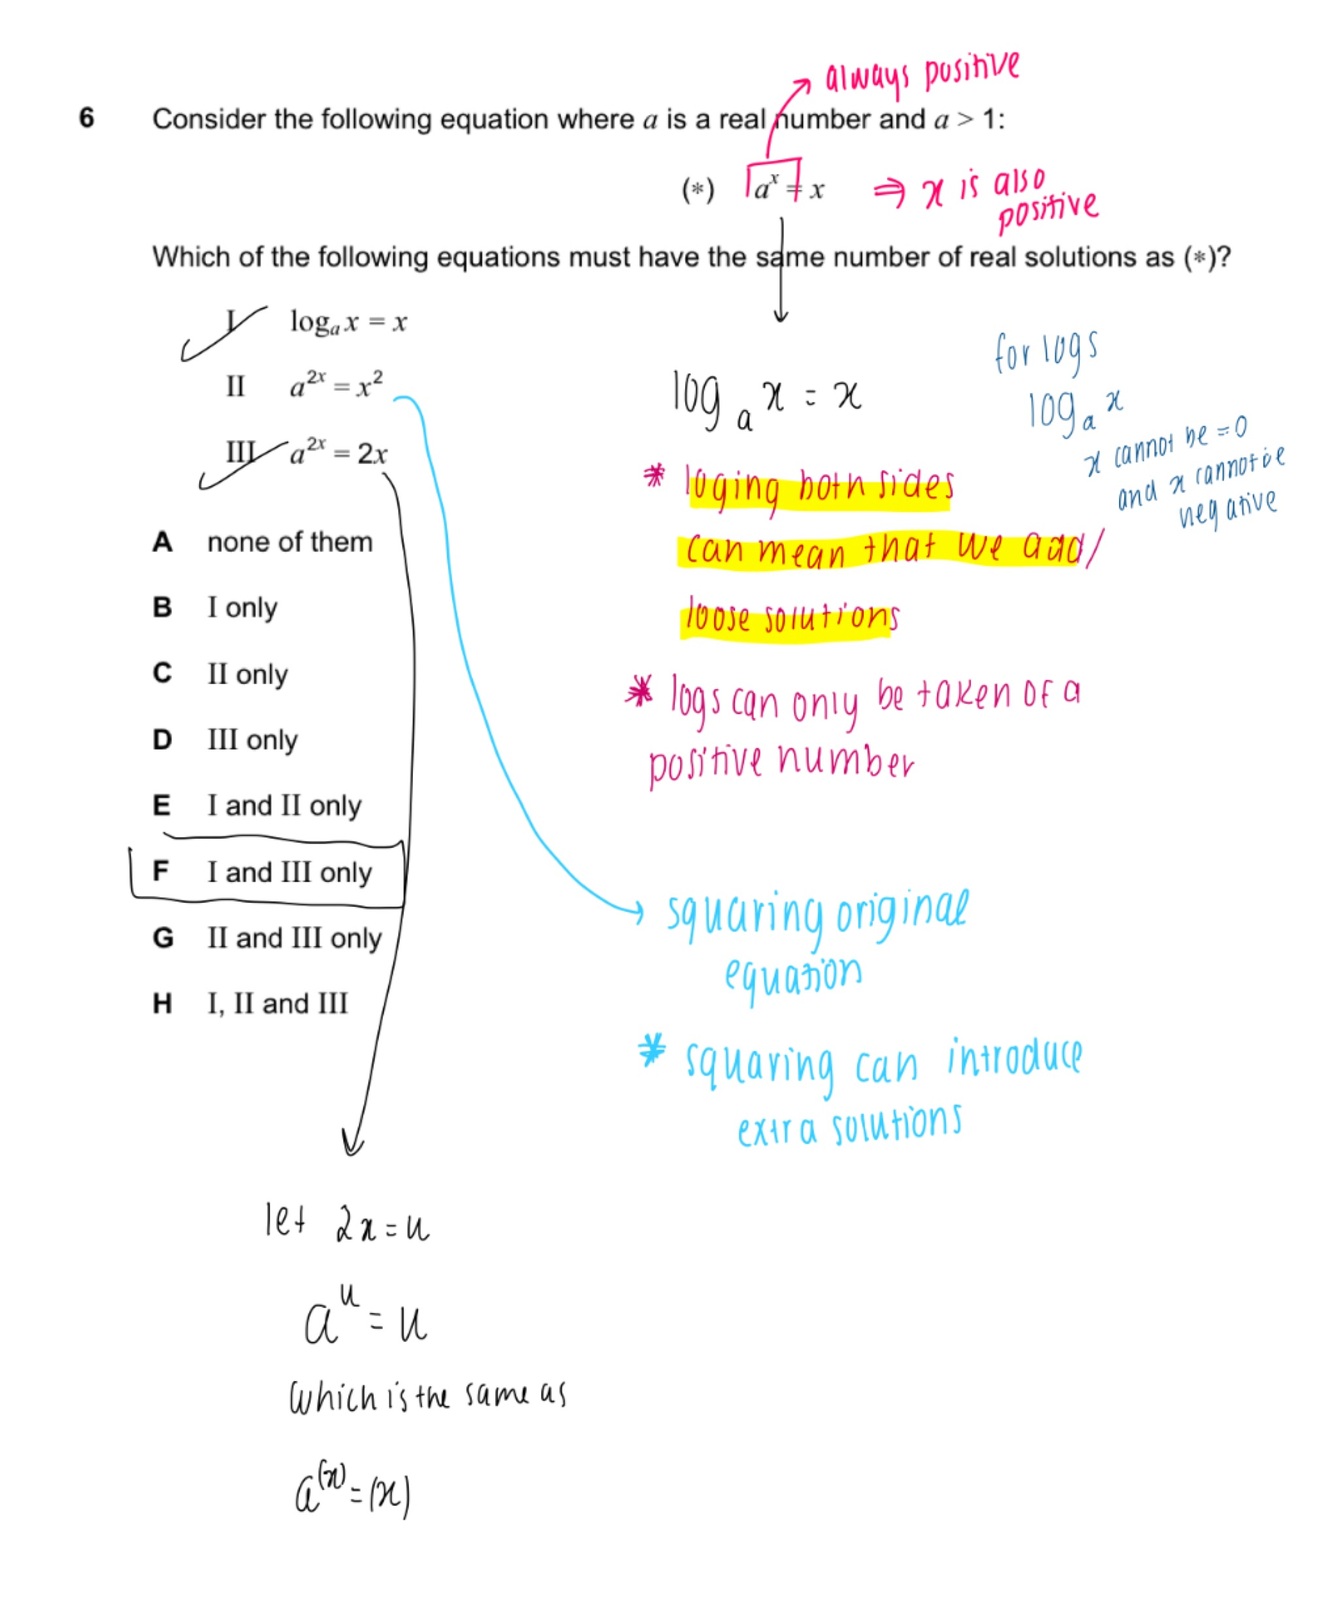 always positive
6 Consider the following equation where a is a real number and a > 1:
(*) aˣ = x ⇒ x is also
positive
Which of the following equations must have the same number of real solutions as (*)?
I logₐ x = x
II a²ˣ = x²
III a²ˣ = 2x
A none of them
B I only
C II only
D III only
E I and II only
F I and III only
G II and III only
H I, II and III
logₐ x = x
for logs
logₐ x
x cannot be = 0
and x cannot be
negative
* loging both sides
can mean that we add/
loose solutions
* logs can only be taken of a
positive number
squaring original
equation
* squaring can introduce
extra solutions
let 2x = u
aᵘ = u
which is the same as
a⁽ˣ⁾ = (x)